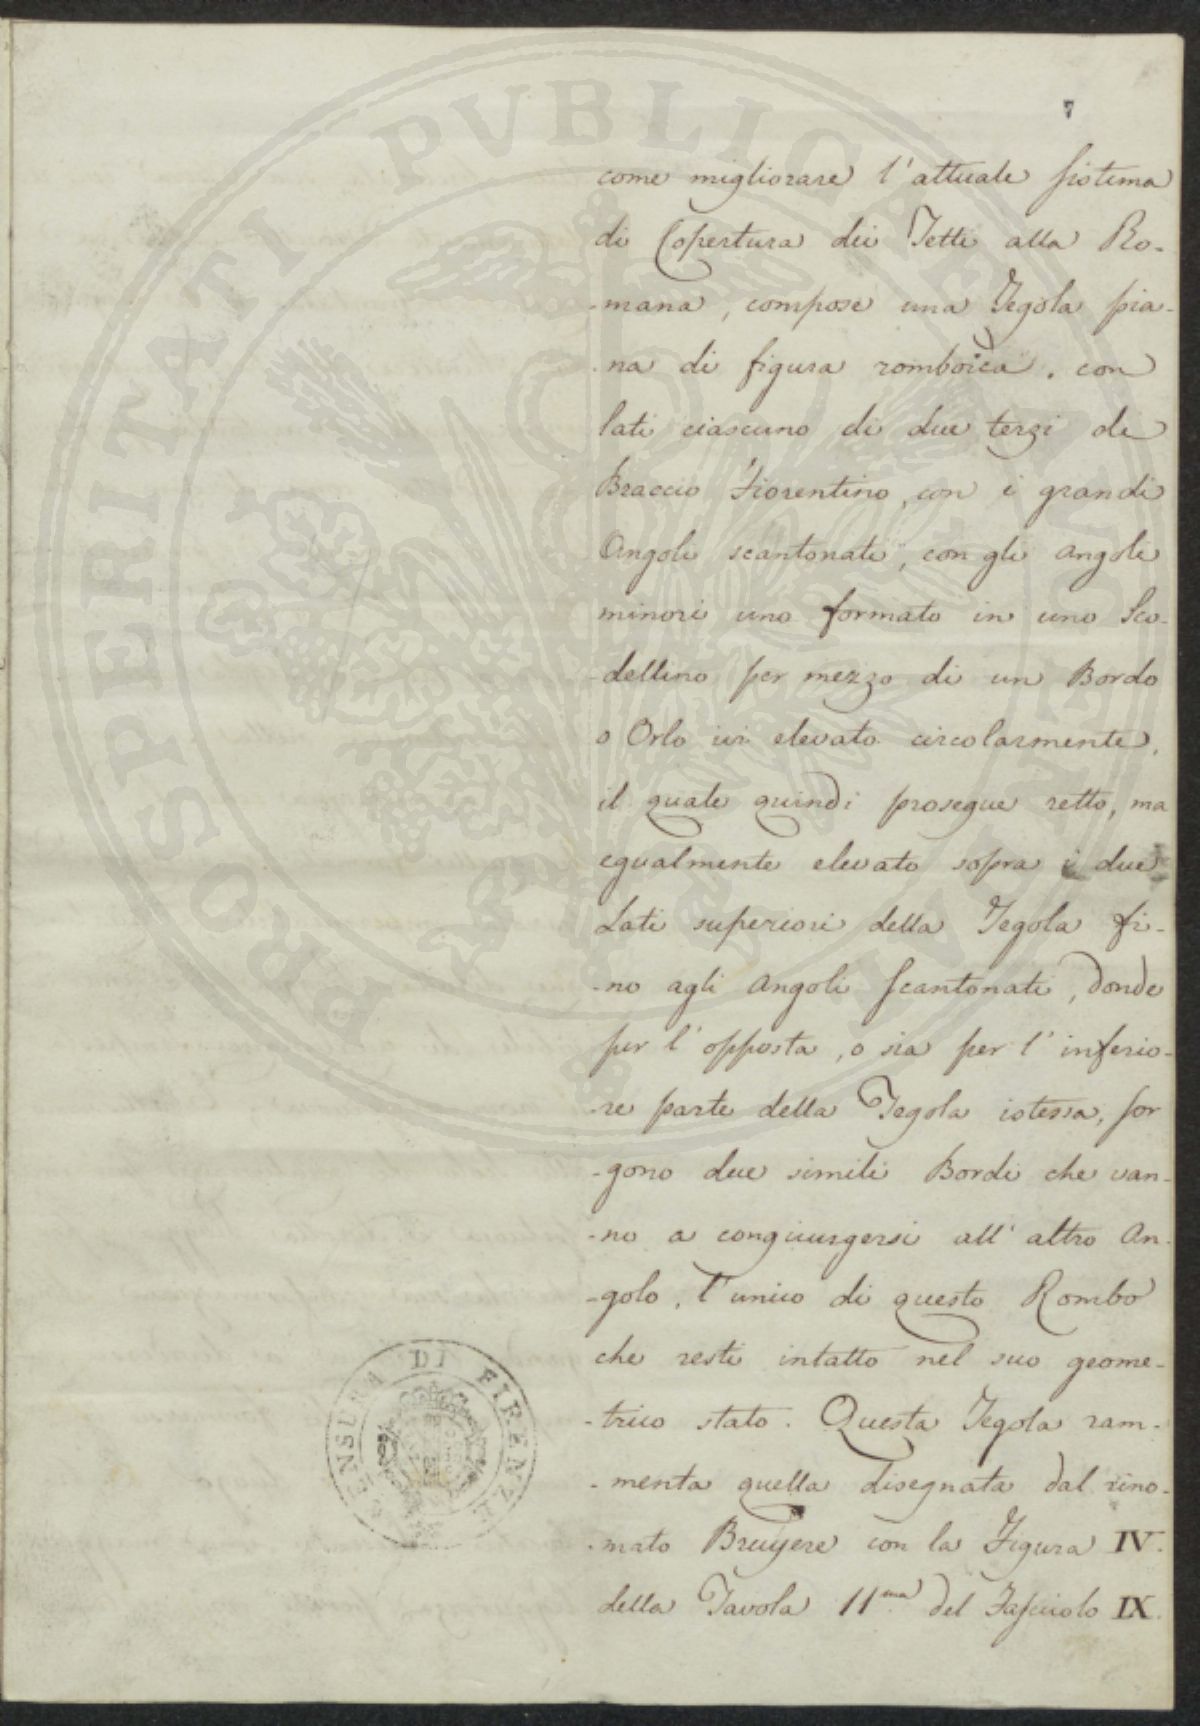 7
come migliorare l'attuale sistema
di Copertura dei Tetti alla Ro-
-mana, compose una Tegola pia-
-na di figura romboica, con
lati ciascuno di due terzi di
Braccio Fiorentino, con i grandi
Angoli scantonati, con gli angoli
minori uno formato in uno Sco-
-dellino per mezzo di un Bordo
o Orlo ivi elevato circolarmente,
il quale quindi prosegue retto, ma
egualmente elevato sopra i due
Lati superiori della Tegola fi-
-no agli Angoli Scantonati, donde
per l'opposta, o sia per l'inferio-
-re parte della Tegola istessa, sor
-gono due simili Bordi che van-
-no a congiungersi all'altro An-
-golo, l'unico di questo Rombo
che resti intatto nel suo geome-
-trico stato. Questa Tegola ram-
-menta quella disegnata dal rino-
-mato Bruyere con la Figura IV.
della Tavola 11.ma del Fascicolo IX.
CENSURA DI FIRENZE
PROSPERITATI PVBLICAE